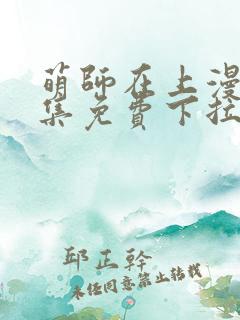 萌師在上漫
集免費下拉
邱正幹
未经同意禁止转载